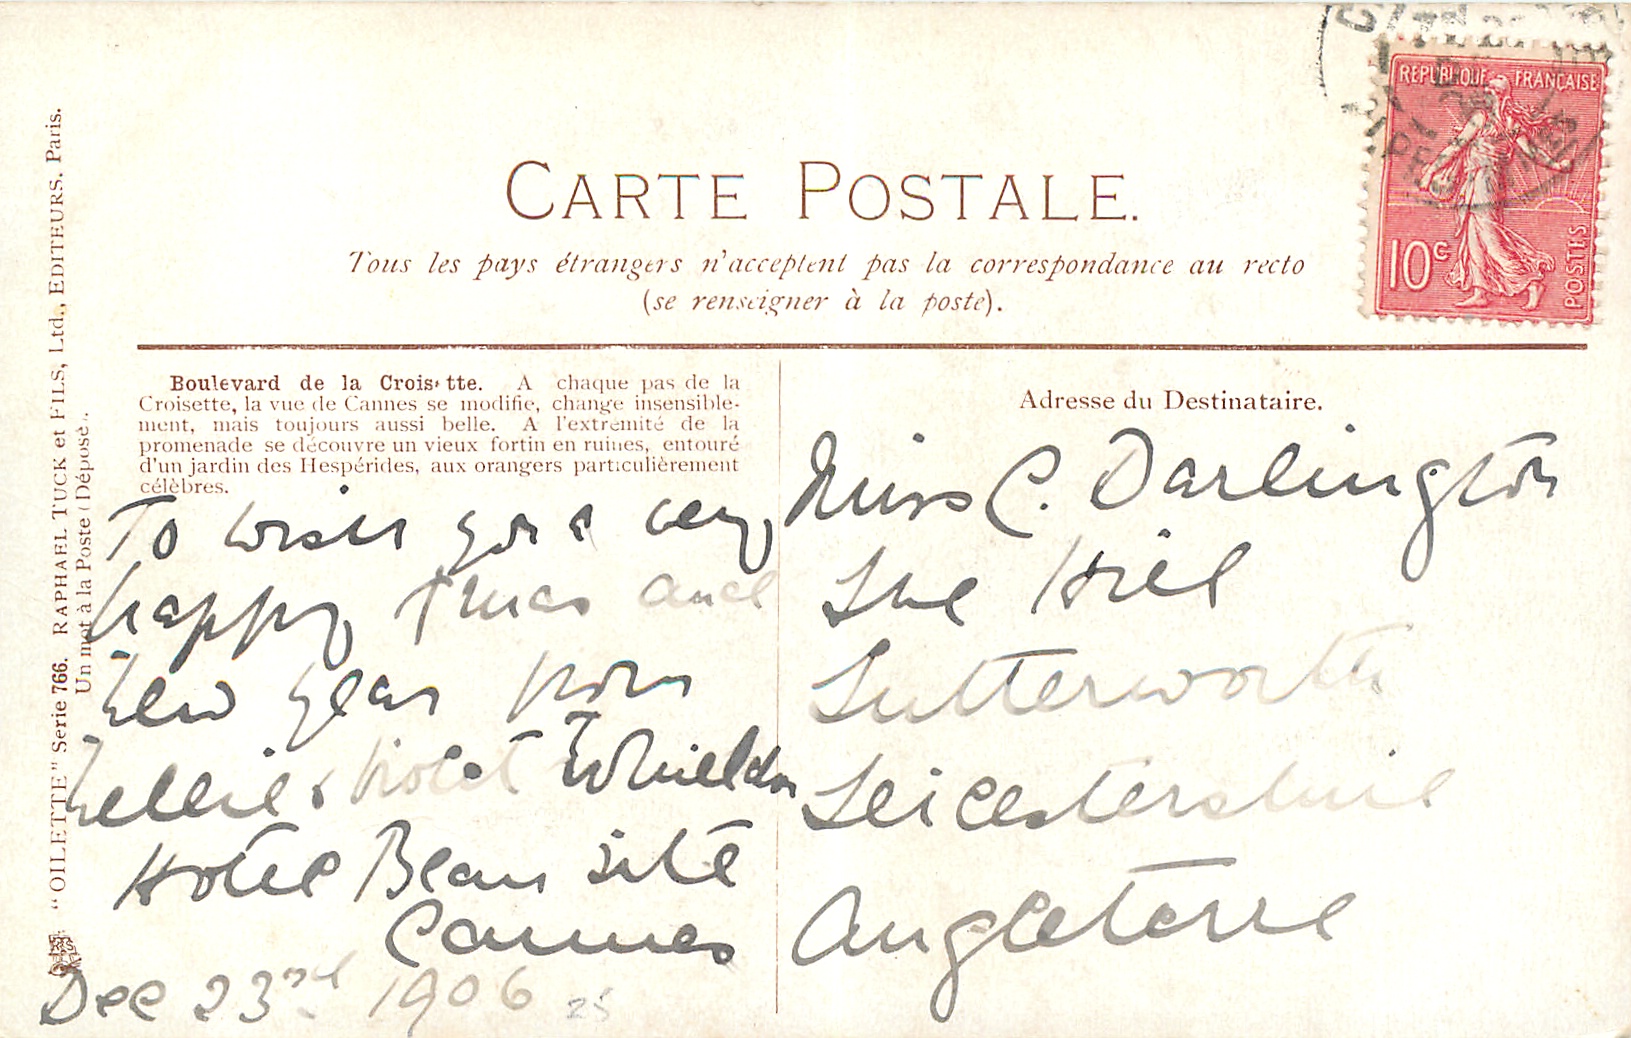 CARTE POSTALE.
Tous les pays étrangers n'acceptent pas la correspondance au recto
(se renseigner à la poste).
REPUBLIQUE FRANÇAISE
10c
POSTES
"OILETTE" Serie 766. RAPHAEL TUCK et FILS, Ltd., EDITEURS, Paris.
Un mot à la Poste (Déposé).
Boulevard de la Croisette. A chaque pas de la
Croisette, la vue de Cannes se modifie, change insensible-
ment, mais toujours aussi belle. A l'extrémité de la
promenade se découvre un vieux fortin en ruines, entouré
d'un jardin des Hespérides, aux orangers particulièrement
célèbres.
To wish you a very
happy Xmas and
New Year from
Nellie & Violet Whieldon
Hotel Beau Site
Cannes
Dec 23rd 1906
25
Adresse du Destinataire.
Miss C. Darlington
The Hill
Lutterworth
Leicestershire
Angleterre